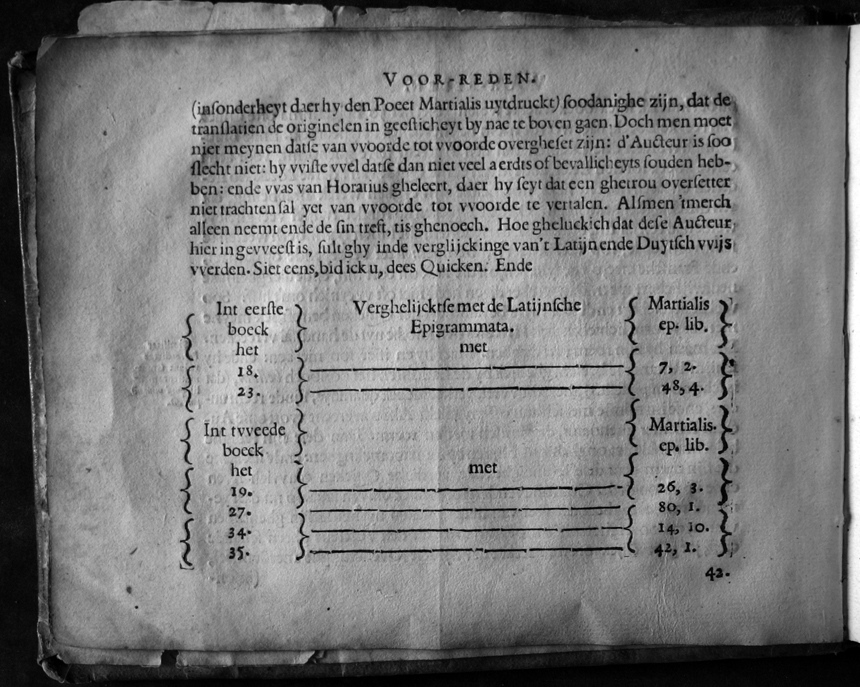 VOOR-REDEN.
(inſonderheyt daer hy den Poeet Martialis uytdruckt) ſoodanighe zijn, dat de
tranſlatien de originelen in geeſticheyt by nae te boven gaen. Doch men moet
niet meynen datſe van vvoorde tot vvoorde overgheſet zijn: d'Aucteur is ſoo
ſlecht niet: hy vviſte vvel datſe dan niet veel aerdts of bevallicheyts ſouden heb-
ben: ende vvas van Horatius gheleert, daer hy ſeyt dat een ghetrou overſetter
niet trachten ſal yet van vvoorde tot vvoorde te vertalen. Alſmen 'tmerch
alleen neemt ende de ſin treft, tis ghenoech. Hoe gheluckich dat deſe Aucteur
hier in gevveeſt is, ſult ghy inde verglijckinge van't Latijn ende Duytſch vvijs
vverden. Siet eens, bid ick u, dees Quicken. Ende
Int eerſte Verghelijcktſe met de Latijnſche Martialis
boeck Epigrammata. ep. lib.
het met
18. 7, 2.
23. 48, 4.
Int tvveede Martialis.
boeck ep. lib.
het met
19. 26, 3.
27. 80, 1.
34. 14, 10.
35. 42, 1.
42.